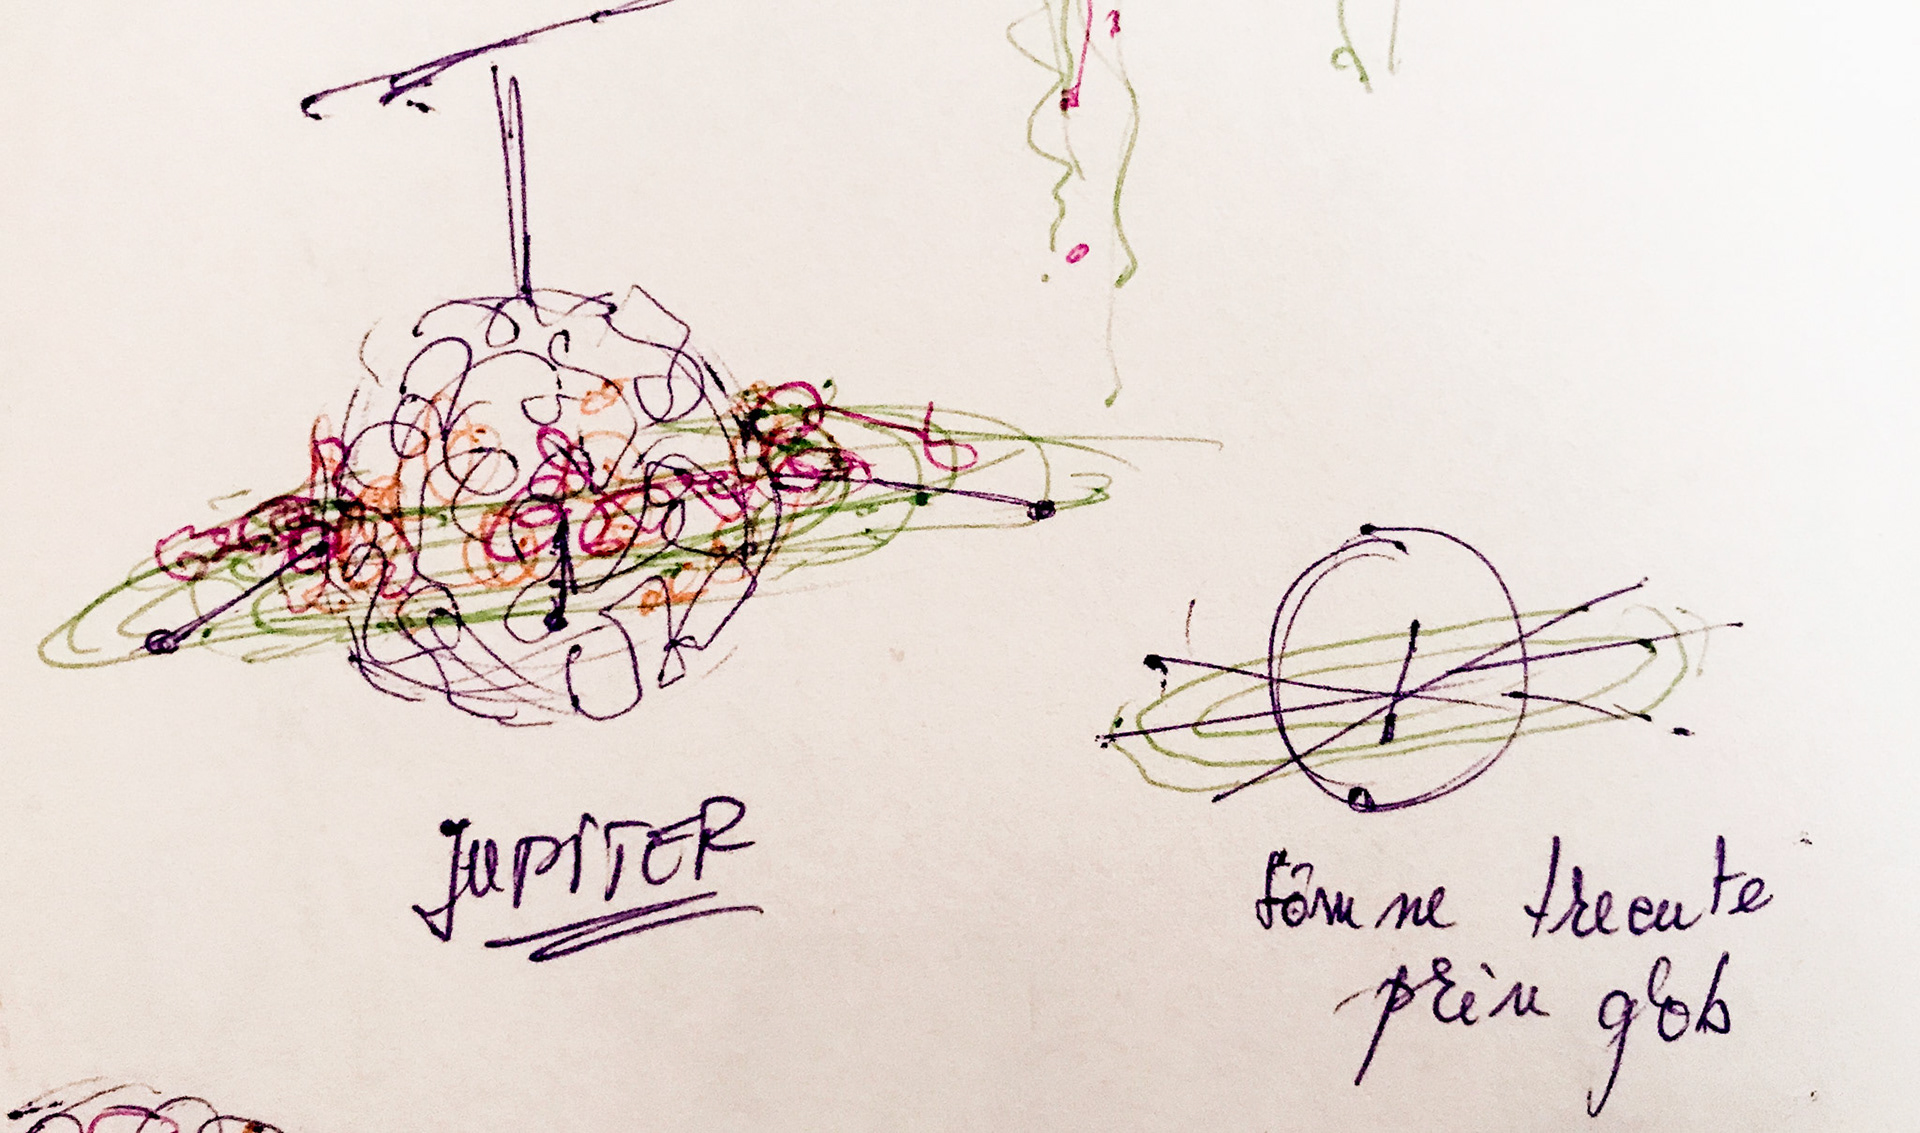 JUPITER
trecute
prin glob